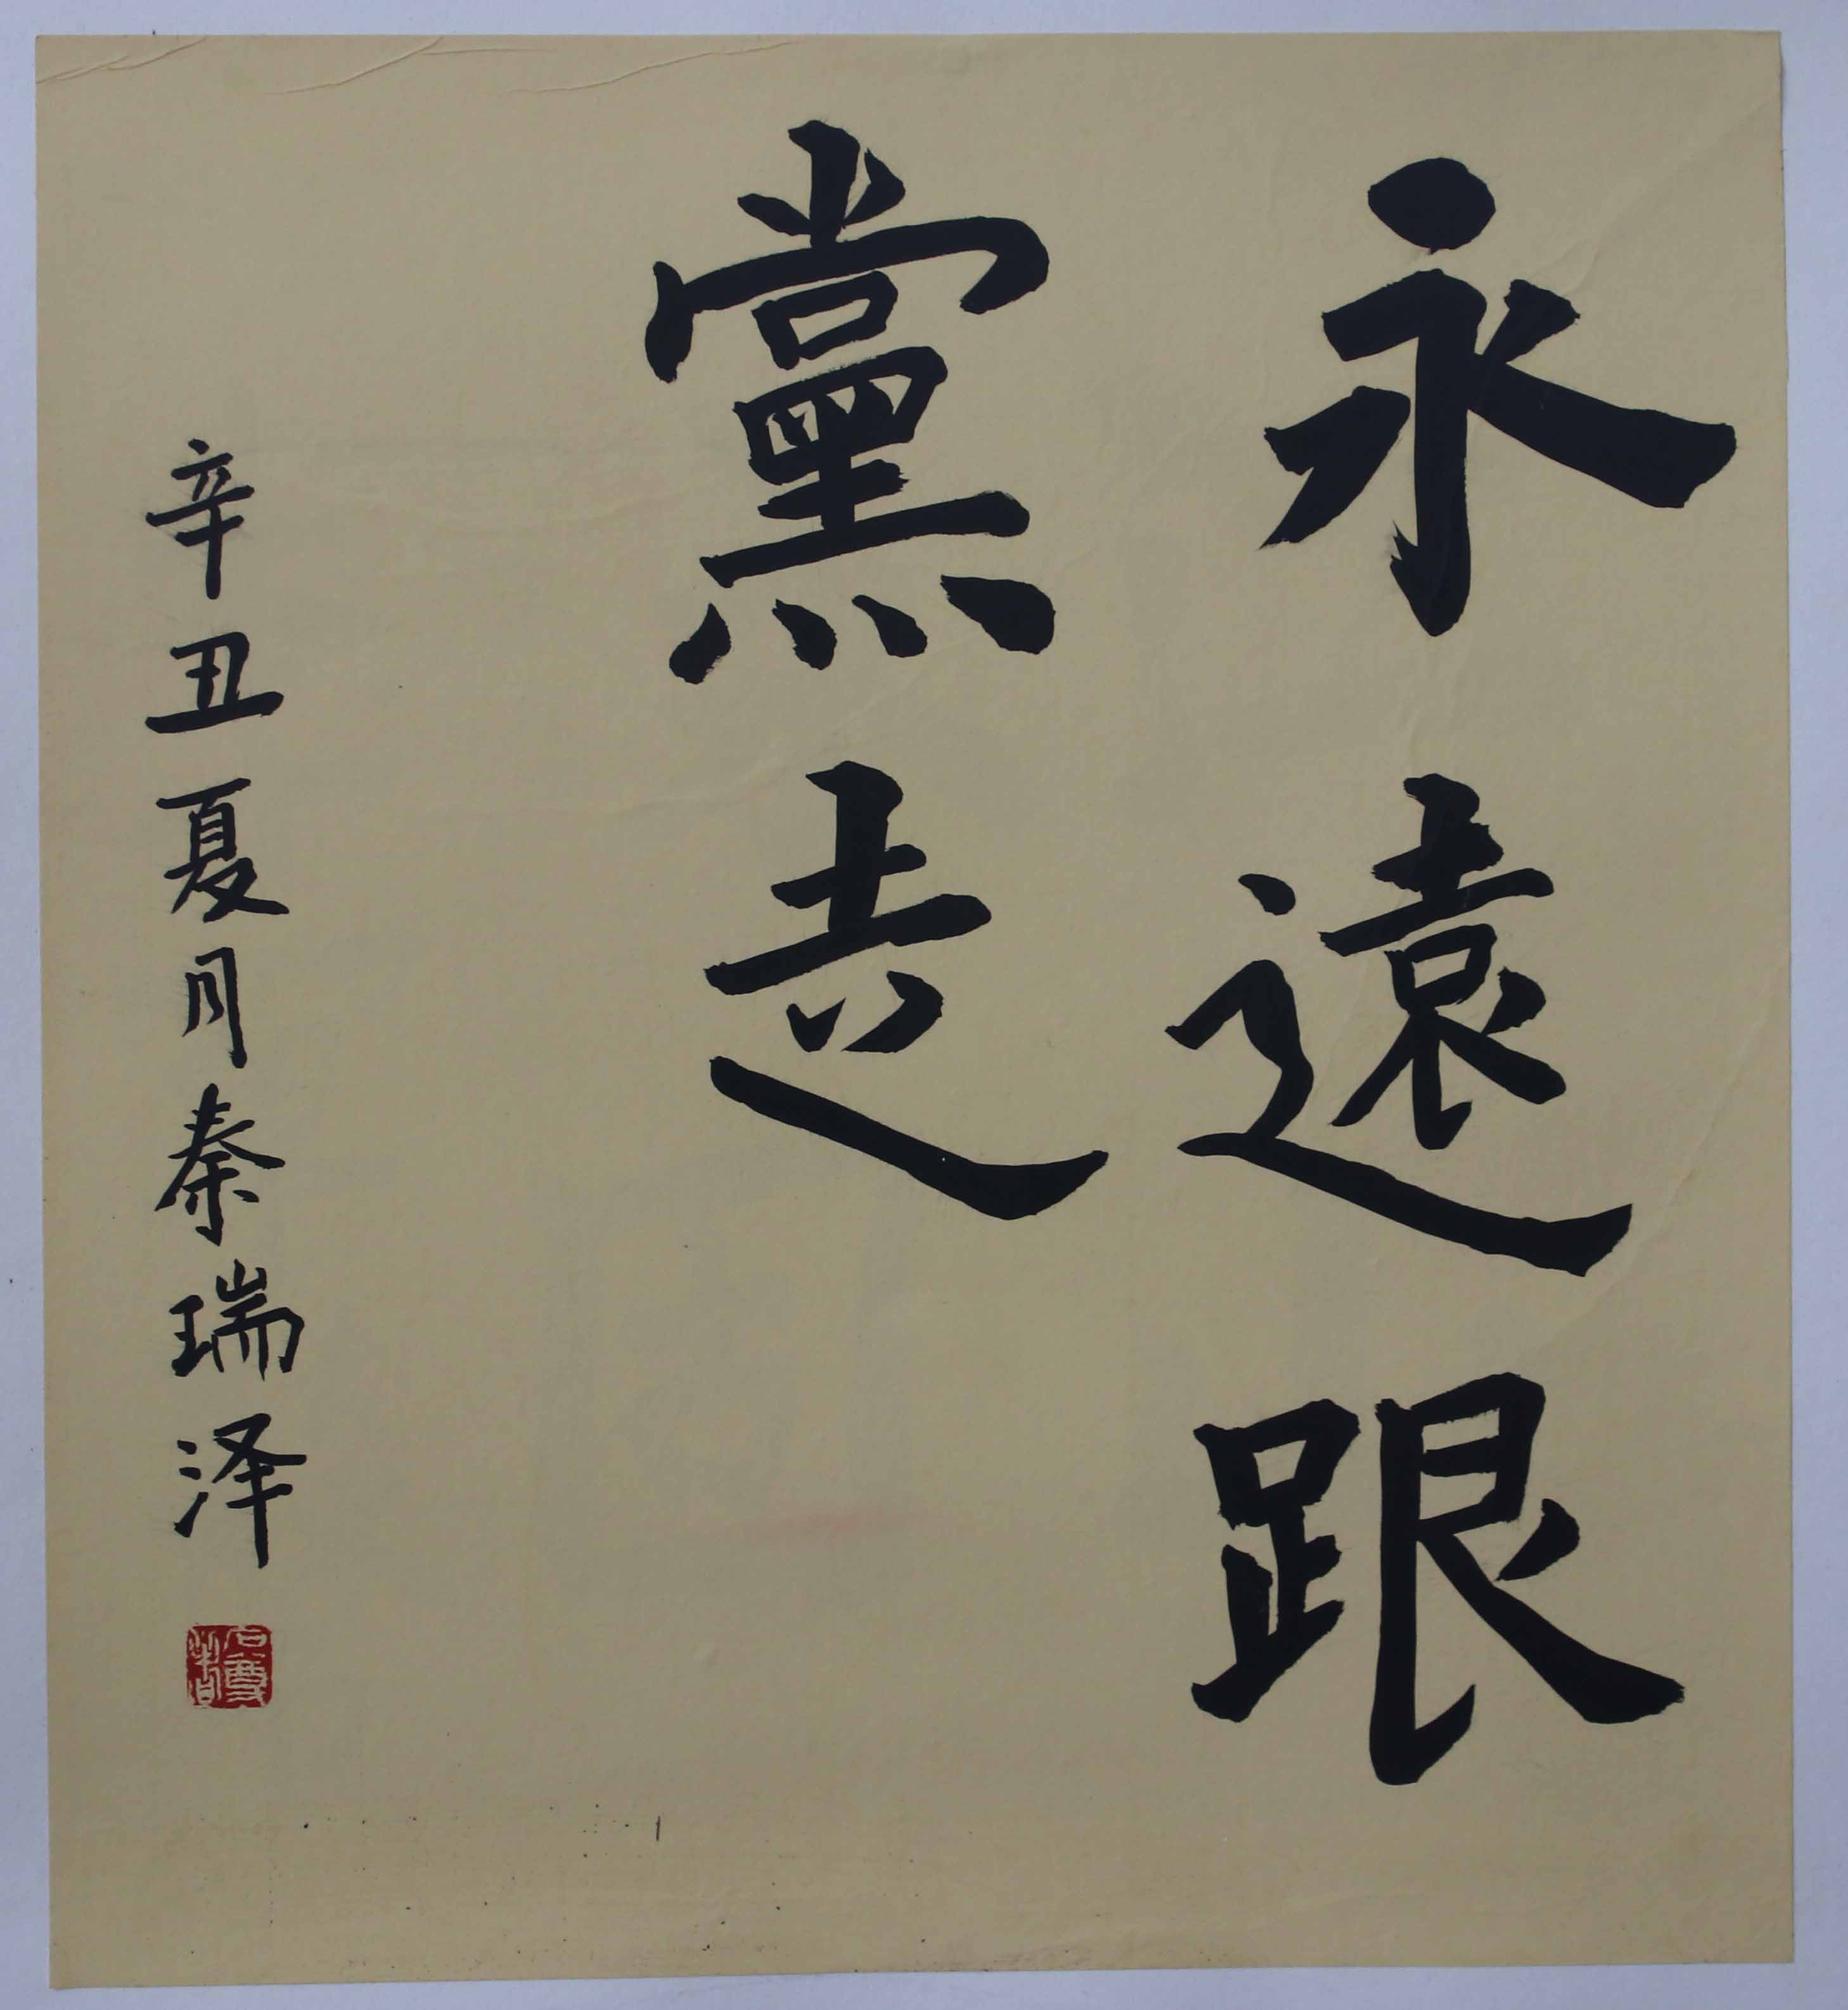 永遠跟
黨走
辛丑夏月秦瑞泽